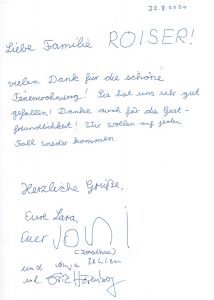 22.8.2020
Liebe Familie ROISER!
vielen Dank für die schöne
Ferienwohnung! Sie hat uns sehr gut
gefallen! Danke auch für die Gast-
freundlichkeit! Wir wollen auf jeden
Fall wieder kommen
Herzliche Grüße,
Eure Lara,
Euer JONI
(Jonathan)
und Anja
und